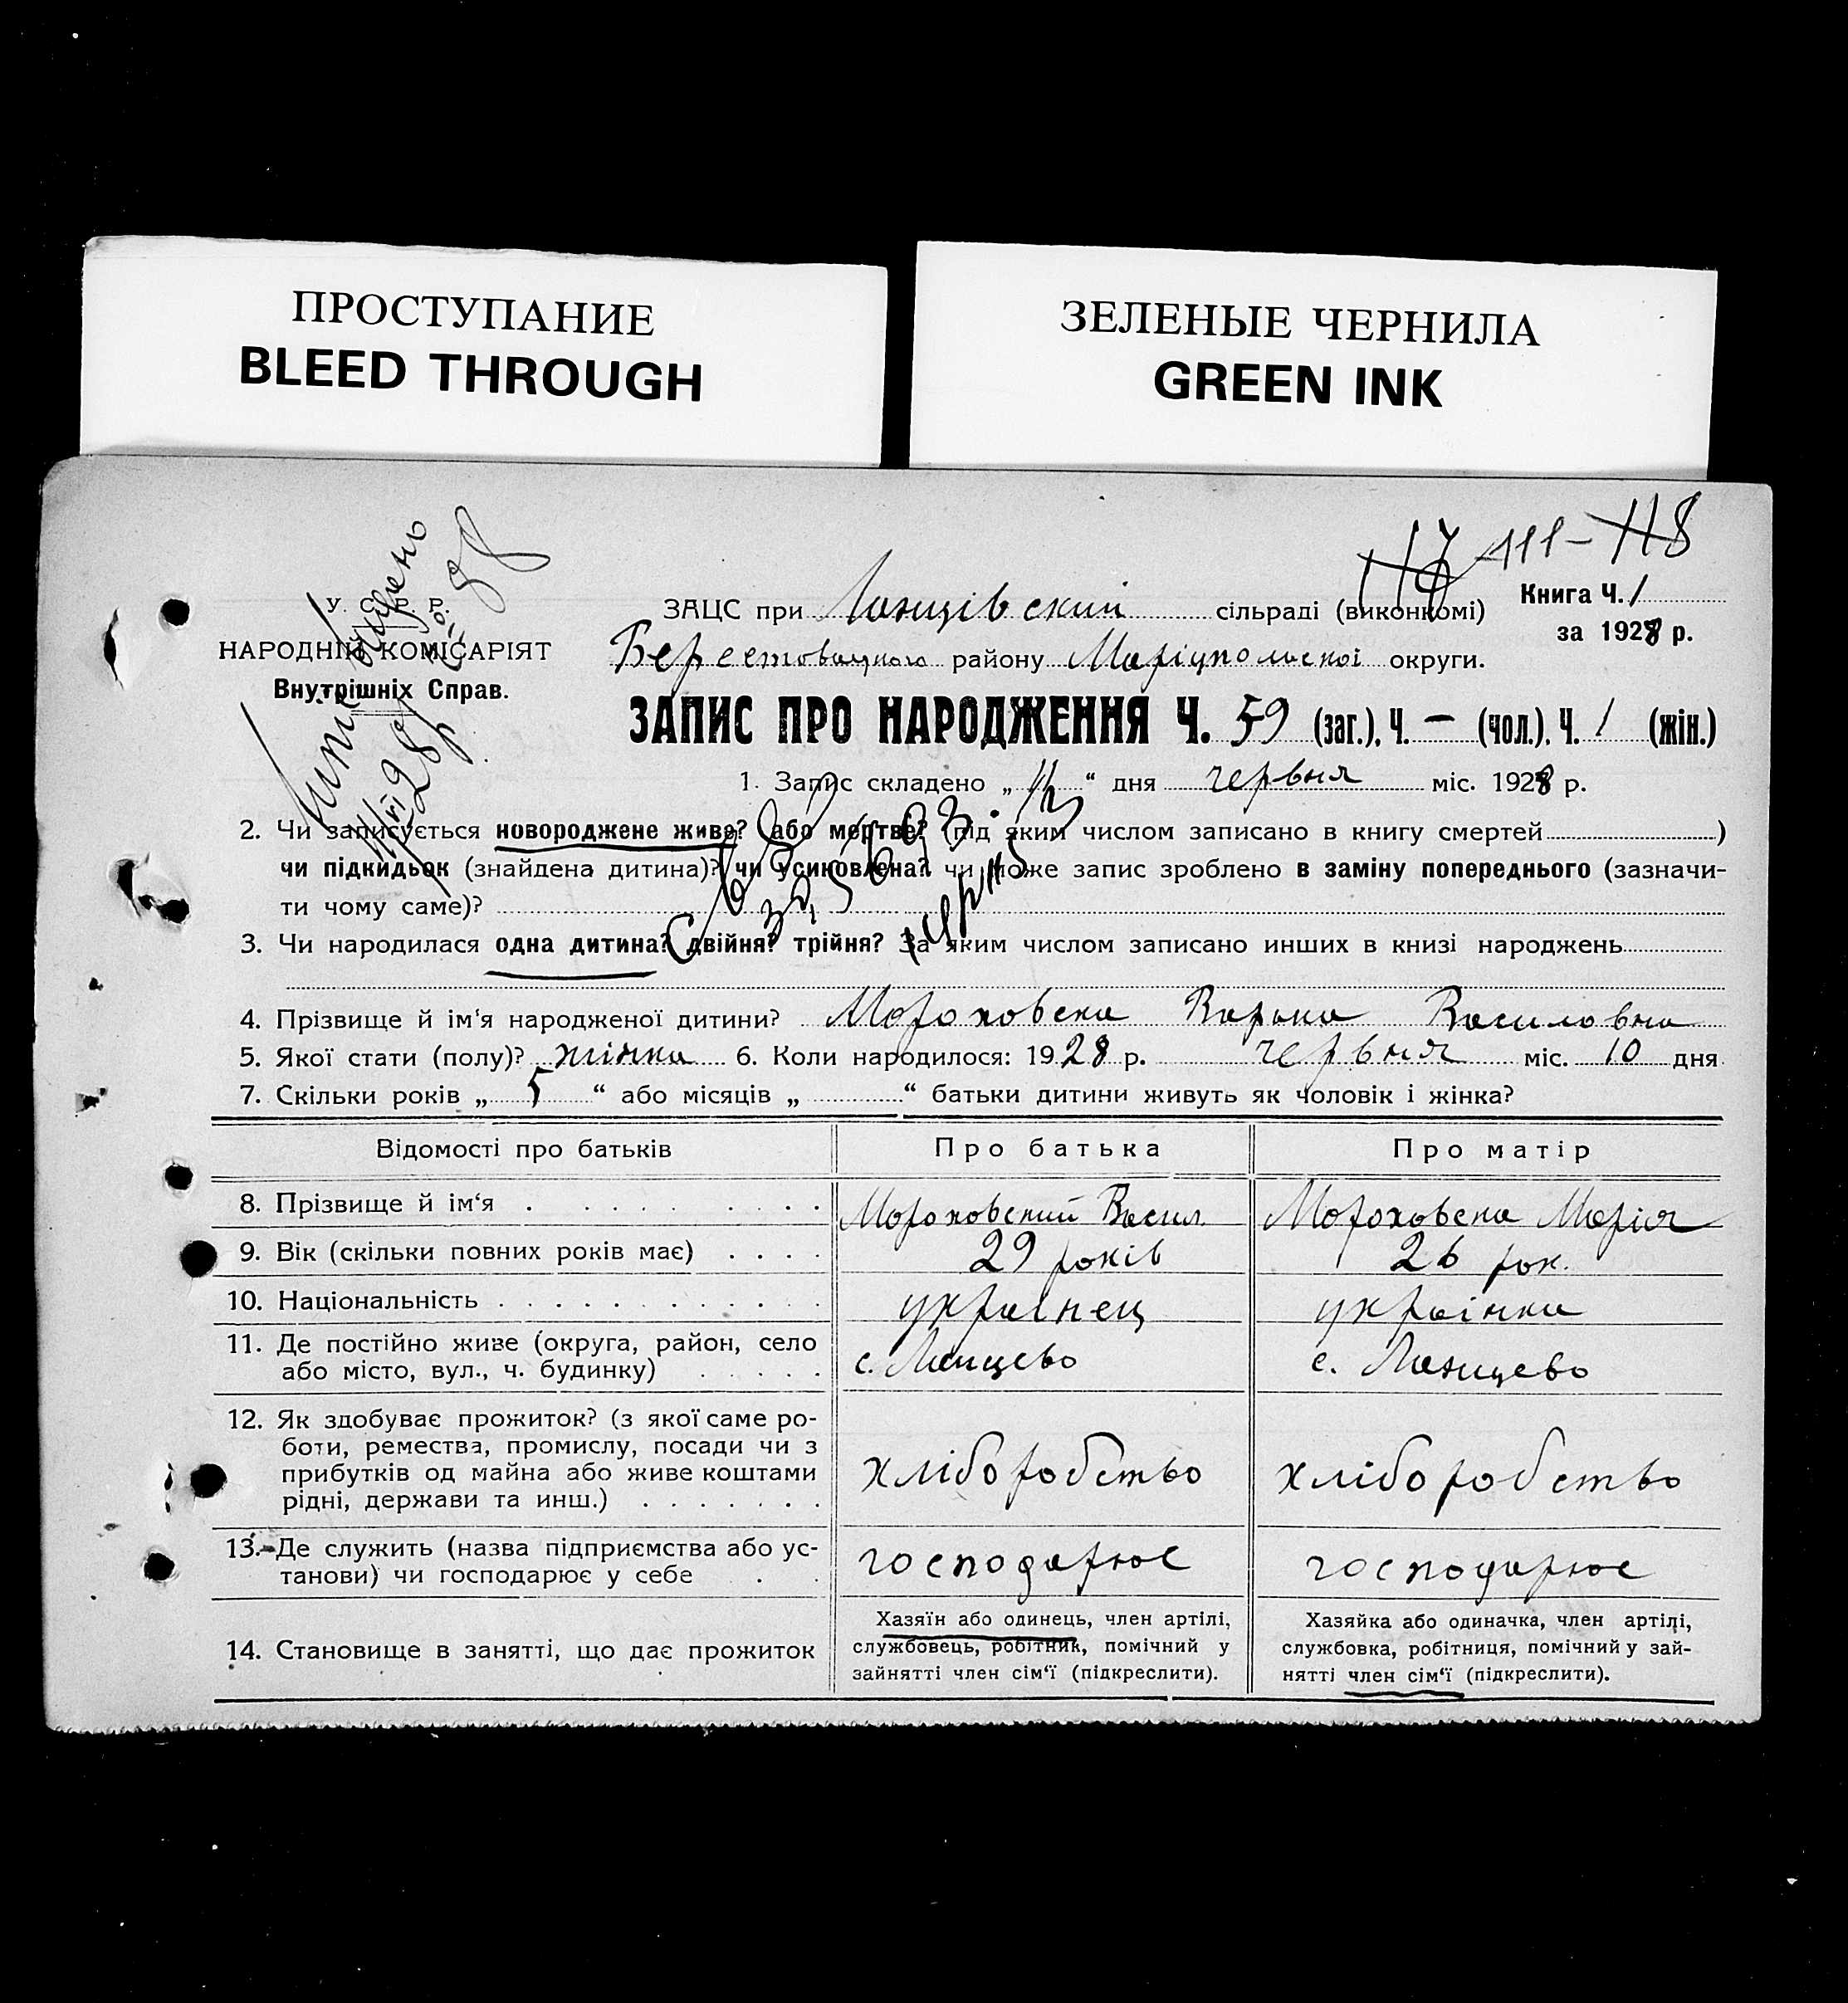 ПРОСТУПАНИЕ
BLEED THROUGH
ЗЕЛЕНЫЕ ЧЕРНИЛА
GREEN INK
111-118
У. С. Р. Р.
НАРОДНІЙ КОМІСАРІЯТ
Внутрішніх Справ.
ЗАЦС при Ланцівский сільраді (виконкомі)
Книга Ч. 1
за 1928 р.
Берестовацького району Маріупольскої округи.
ЗАПИС ПРО НАРОДЖЕННЯ Ч. 59 (заг.), Ч. — (чол.), Ч. 1 (жін.)
1. Запис складено „ “ дня червня міс. 1928 р.
2. Чи записується новороджене живе? або мертве? (під яким числом записано в книгу смертей )
чи підкидьок (знайдена дитина)? чи усиновлена? чи може запис зроблено в заміну попереднього (зазначи-
ти чому саме)?
3. Чи народилася одна дитина? двійня? трійня? За яким числом записано инших в книзі народжень
4. Прізвище й ім'я народженої дитини? Мороховска Варька Василовна
5. Якої стати (полу)? жінка 6. Коли народилося: 1928 р. червня міс. 10 дня
7. Скільки років „ 5 “ або місяців „ “ батьки дитини живуть як чоловік і жінка?
Відомості про батьків Про батька Про матір
8. Прізвище й ім'я Мороховский Васил. Мороховска Марія
9. Вік (скільки повних років має) 29 років 26 рок.
10. Національність українец українка
11. Де постійно живе (округа, район, село
або місто, вул., ч. будинку)
с. Ланцево с. Ланцево
12. Як здобуває прожиток? (з якої саме ро-
боти, ремества, промислу, посади чи з
прибутків од майна або живе коштами
рідні, держави та инш.)
хліборобство хліборобство
13. Де служить (назва підприємства або ус-
танови) чи господарює у себе
господарює господарює
14. Становище в занятті, що дає прожиток
Хазяїн або одинець, член артілі,
службовець, робітник, помічний у
зайнятті член сім'ї (підкреслити).
Хазяйка або одиначка, член артілі,
службовка, робітниця, помічний у зай-
нятті член сім'ї (підкреслити).